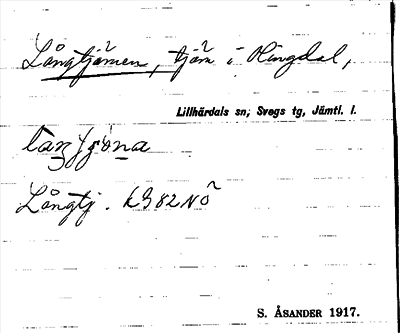 Långtjärnen, tjärn i Ringdal,
Lillhärdals sn; Svegs tg, Jämtl. l.
Långtj. kB 82 NÖ
S. ÅSANDER 1917.